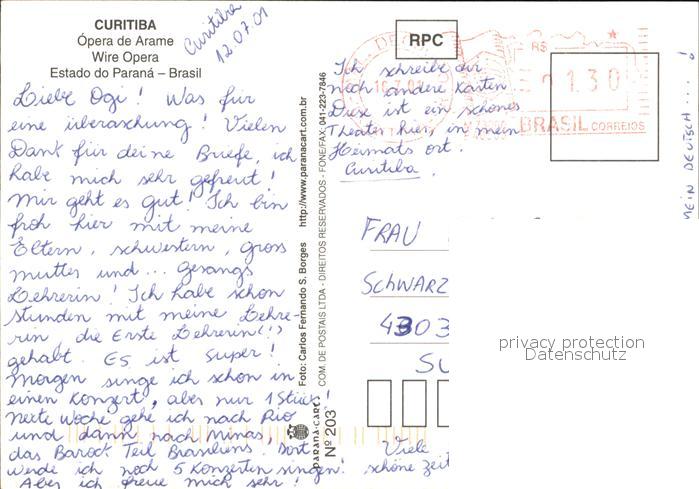 CURITIBA
Ópera de Arame
Wire Opera
Estado do Paraná – Brasil
Curitiba
12.07.01
Liebe Ogi! Was für
eine überaschung! Vielen
Dank für deine Briefe, ich
habe mich sehr gefreut!
Mir geht es gut! Ich bin
froh hier mit meine
Eltern, schwestern, gross
mutter und... Gesangs
Lehrerin! Ich habe schon
stunden mit meine Lehre-
rin, die Erste Lehrerin(!)
gehabt. Es ist super!
Morgen singe ich schon in
einen Konzert, aber nur 1 Stück!
Nexte Woche gehe ich nach Rio
und dann nach Minas,
das Barock Teil Brasiliens. Dort
werde ich noch 5 Konzerten singen!
Aber ich freue mich sehr!
Foto: Carlos Fernando S. Borges http://www.paranacart.com.br
COM. DE POSTAIS LTDA - DIREITOS RESERVADOS - FONE/FAX: 041-223-7846
PARANÁ-CART
Nº 203
RPC
R$
1.30
BRASIL CORREIOS
Ich schreibe dir
noch andere Karten
Diese ist ein schönes
Theater hier, in mein
Heimats ort.
Curitiba.
MEIN DEUTSCH....!
FRAU
SCHWARZ
4303
privacy protection
Datenschutz
Viele
schöne zeit